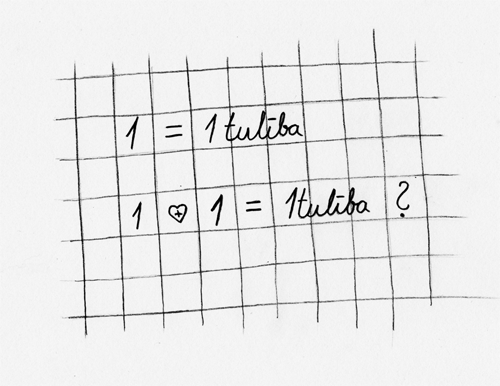 1 = 1tulība
1 ♡ 1 = 1tulība ?